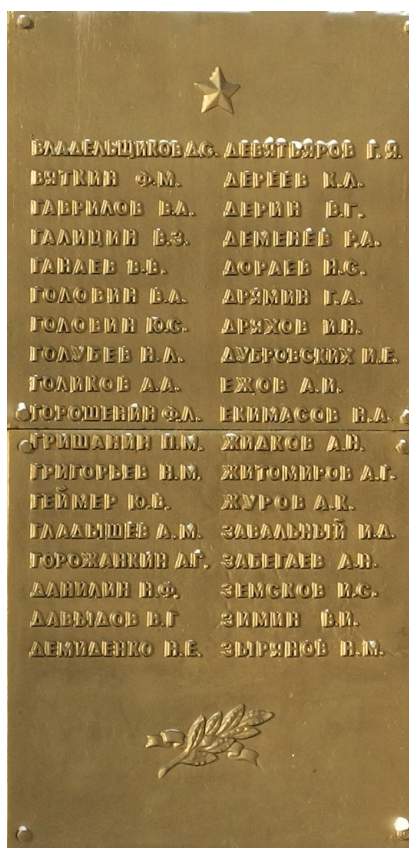 ВЛАДЕЛЬЩИКОВ Д.С.
ВЯТКИН Ф.М.
ГАВРИЛОВ В.А.
ГАЛИЦИН В.З.
ГАНАЕВ В.В.
ГОЛОВИН В.А.
ГОЛОВИН Ю.С.
ГОЛУБЕВ Н.Л.
ГОЛИКОВ А.А.
ГОРОШЕНИН Ф.Л.
ГРИШАНИН П.М.
ГРИГОРЬЕВ Н.М.
ГЕЙМЕР Ю.В.
ГЛАДЫШЕВ Д.М.
ГОРОЖАНКИН А.Г.
ДАНИЛИН Н.Ф.
ДАВЫДОВ В.Г
ДЕМИДЕНКО Н.Е.
ДЕВЯТЬЯРОВ Г.Я.
ДЕРЕЕВ К.Л.
ДЕРИН В.Г.
ДЕМЕНЕВ Р.А.
ДОРАЕВ Н.С.
ДРЯМИН Г.А.
ДРЯХОВ И.Н.
ДУБРОВСКИХ И.Е.
ЕЖОВ А.И.
ЕКИМАСОВ Н.А.
ЖИДКОВ А.Н.
ЖИТОМИРОВ А.Г.
ЖУРОВ А.К.
ЗАВАЛЬНЫЙ И.Д.
ЗАБЕГАЕВ А.Н.
ЗЕМСКОВ И.С.
ЗИМИН В.И.
ЗЫРЯНОВ Н.М.